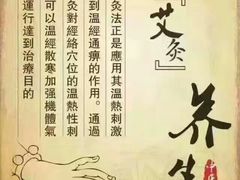 『艾灸』
养生
灸法正是應用其溫熱刺激
到溫經通痹的作用。通過
灸對經絡穴位的溫熱性刺
可以溫經散寒加强機體氣
運行達到治療目的